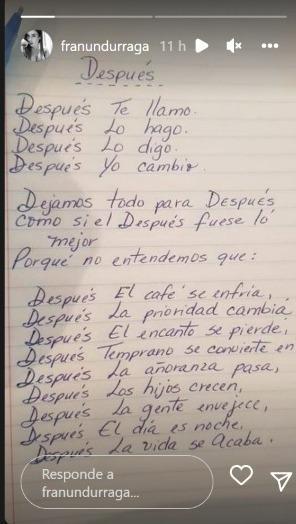 franundurraga 11 h
Después
Después Te llamo.
Después Lo hago.
Después Lo digo.
Después Yo cambio.
Dejamos todo para DESPUÉS
como si el Después fuese lo
mejor
Porqué no entendemos que:
Después El café se enfría,
Después La prioridad cambia,
Después El encanto se pierde,
Después Temprano se convierte en
Después La añoranza pasa,
Después Los hijos crecen,
Después La gente envejece,
Después El día es noche,
Después La vida se Acaba.
Responde a
franundurraga...